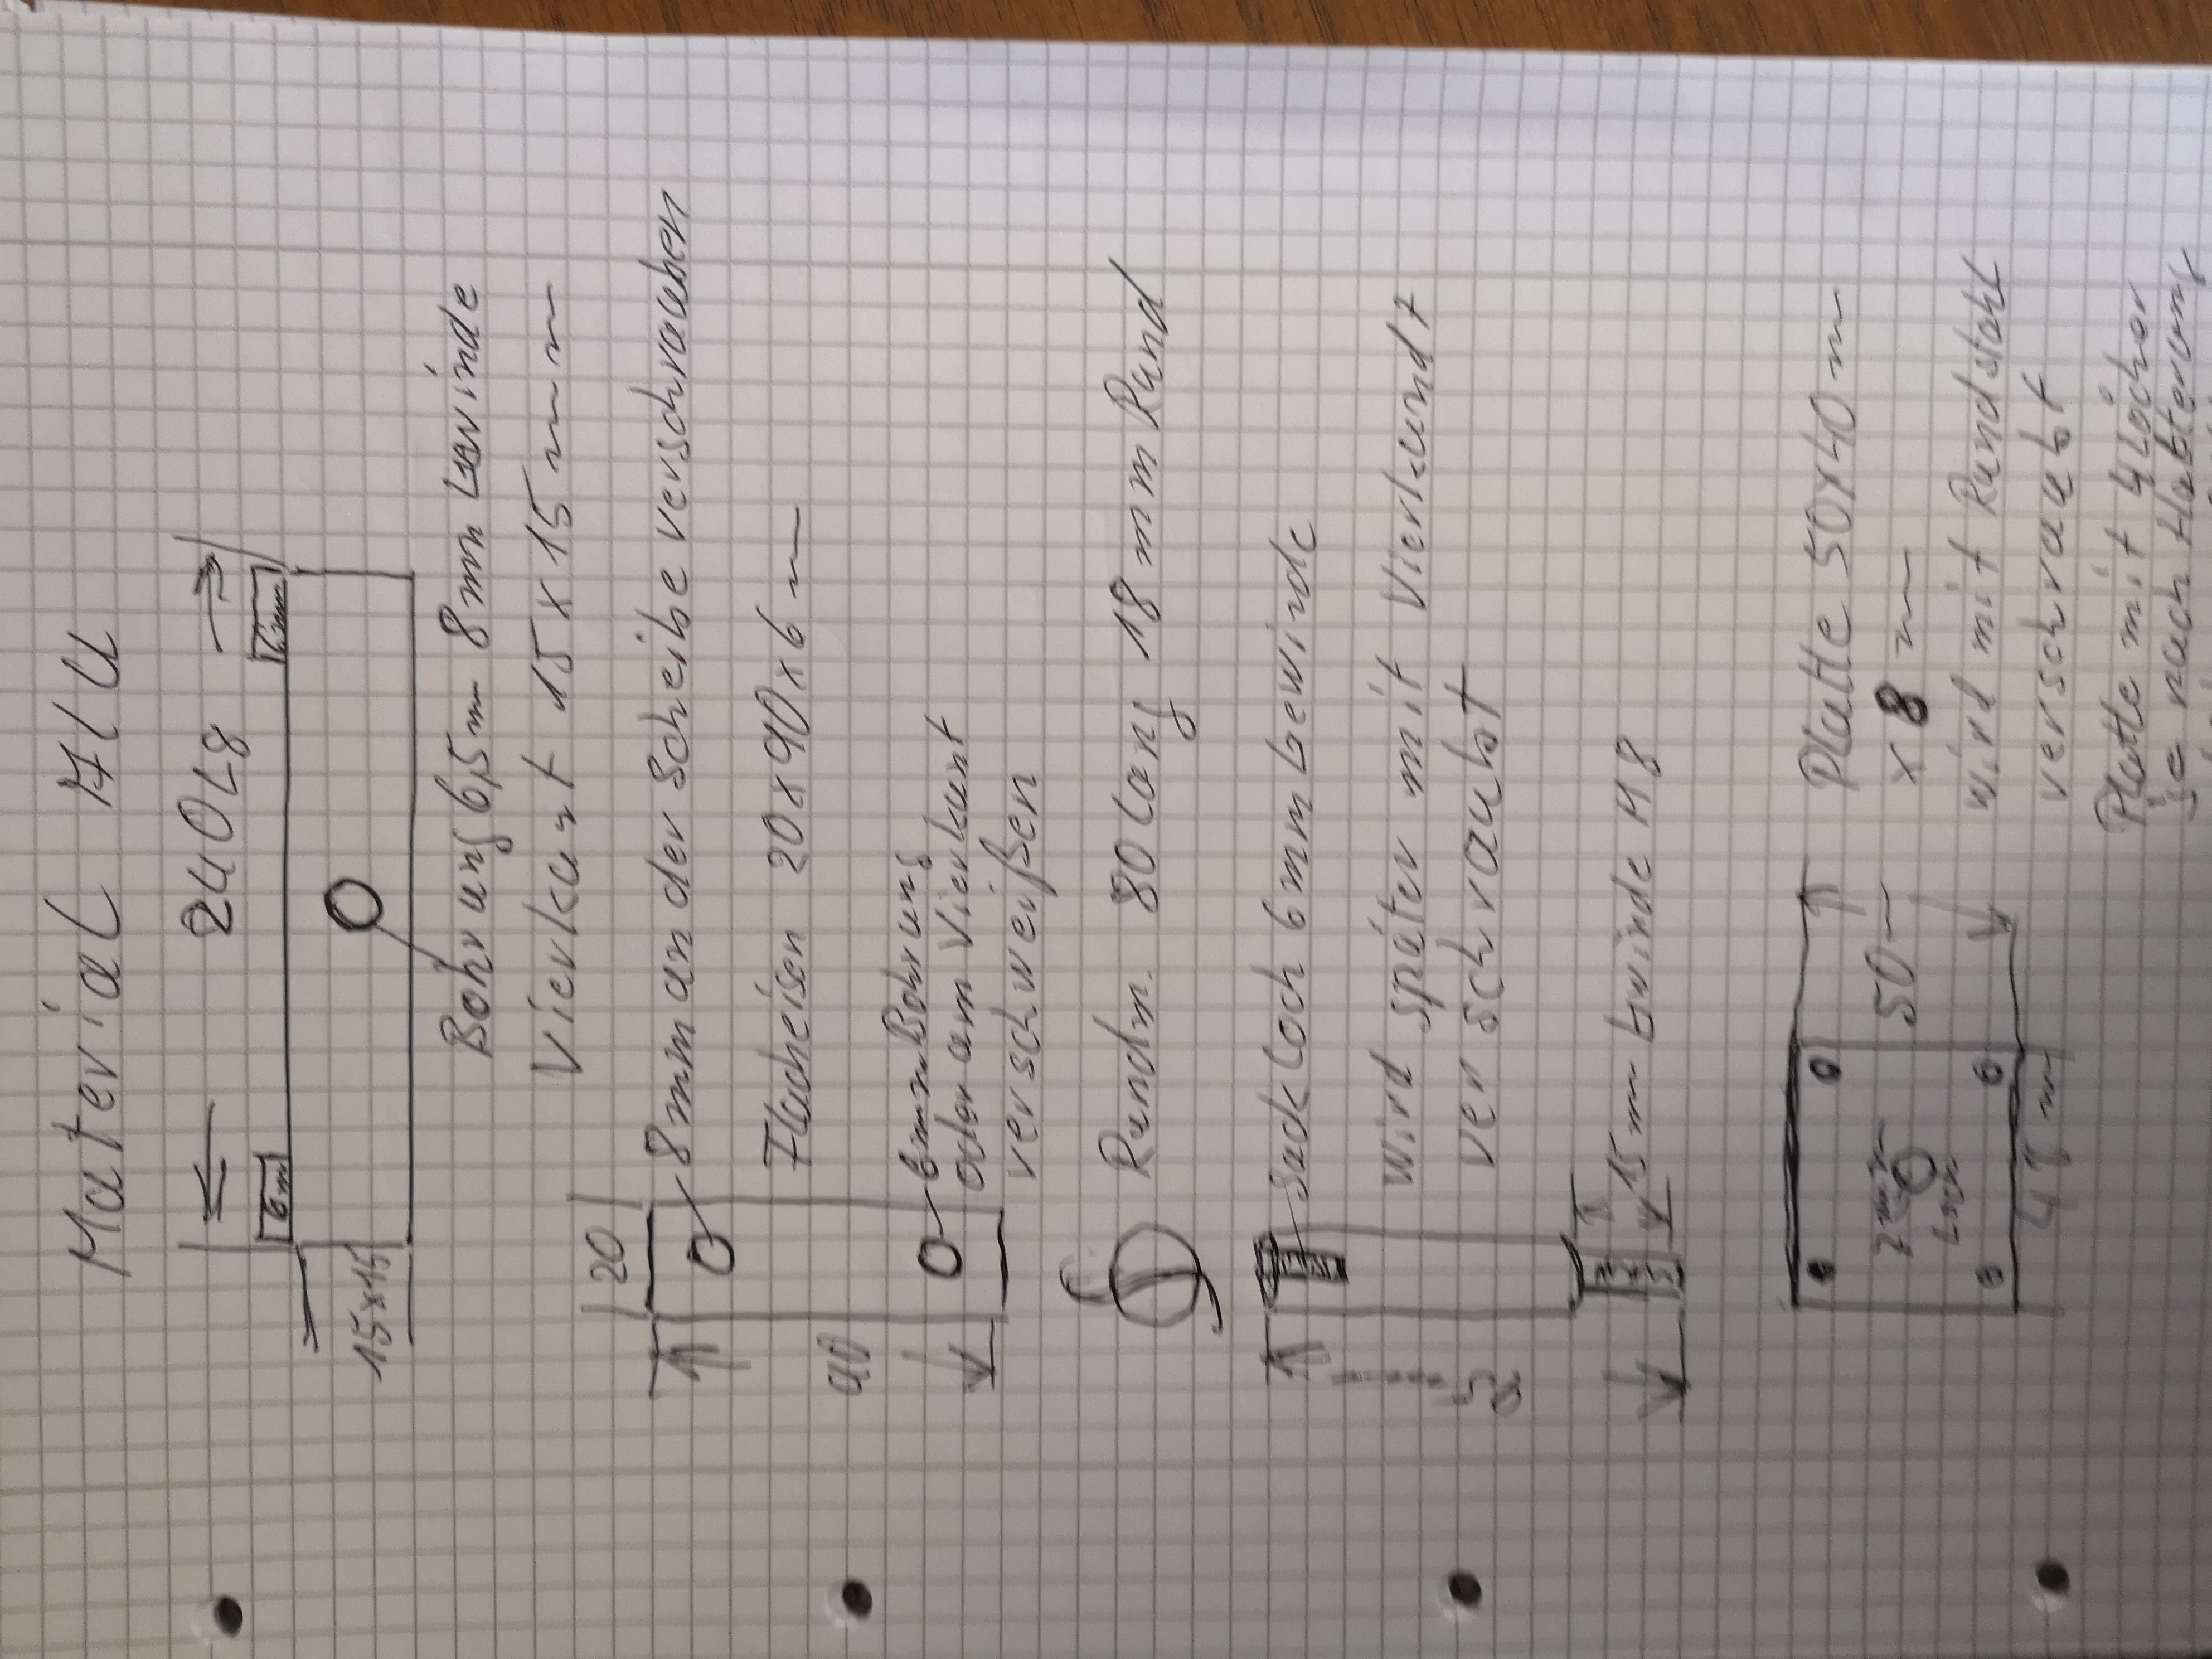 Material Alu
240 Lg
6m
6mm
15x15
Bohrung 6,5m 8mm Gewinde
Vierkant 15x15 mm
20
8mm an der Scheibe verschrauben
Flacheisen 20x90x6 m
90
6mm Bohrung
oder am Vierkant
verschweißen
Rundm. 80 lang 18 mm Rund
Sackloch 6mm Gewinde
wird später mit Vierkand
verschraubt
15 m Gewinde M8
Platte 50x40 m
x 8 m
50
wird mit Rundstahl
verschraubt
Platte mit 4 Löcher
je nach Halterung